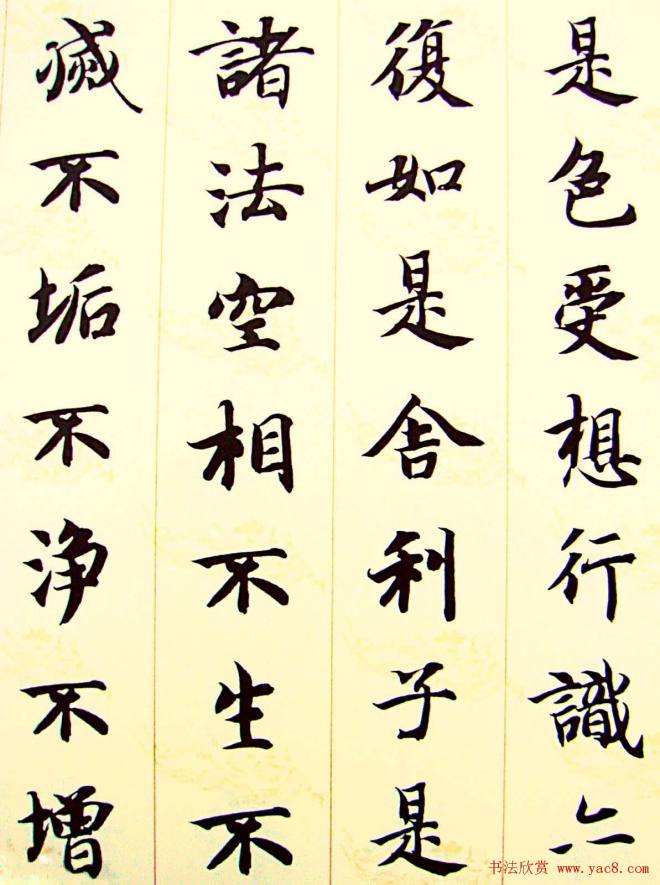 是色受想行識亦
復如是舍利子是
諸法空相不生不
滅不垢不浄不增
书法欣赏 www.yac8.com